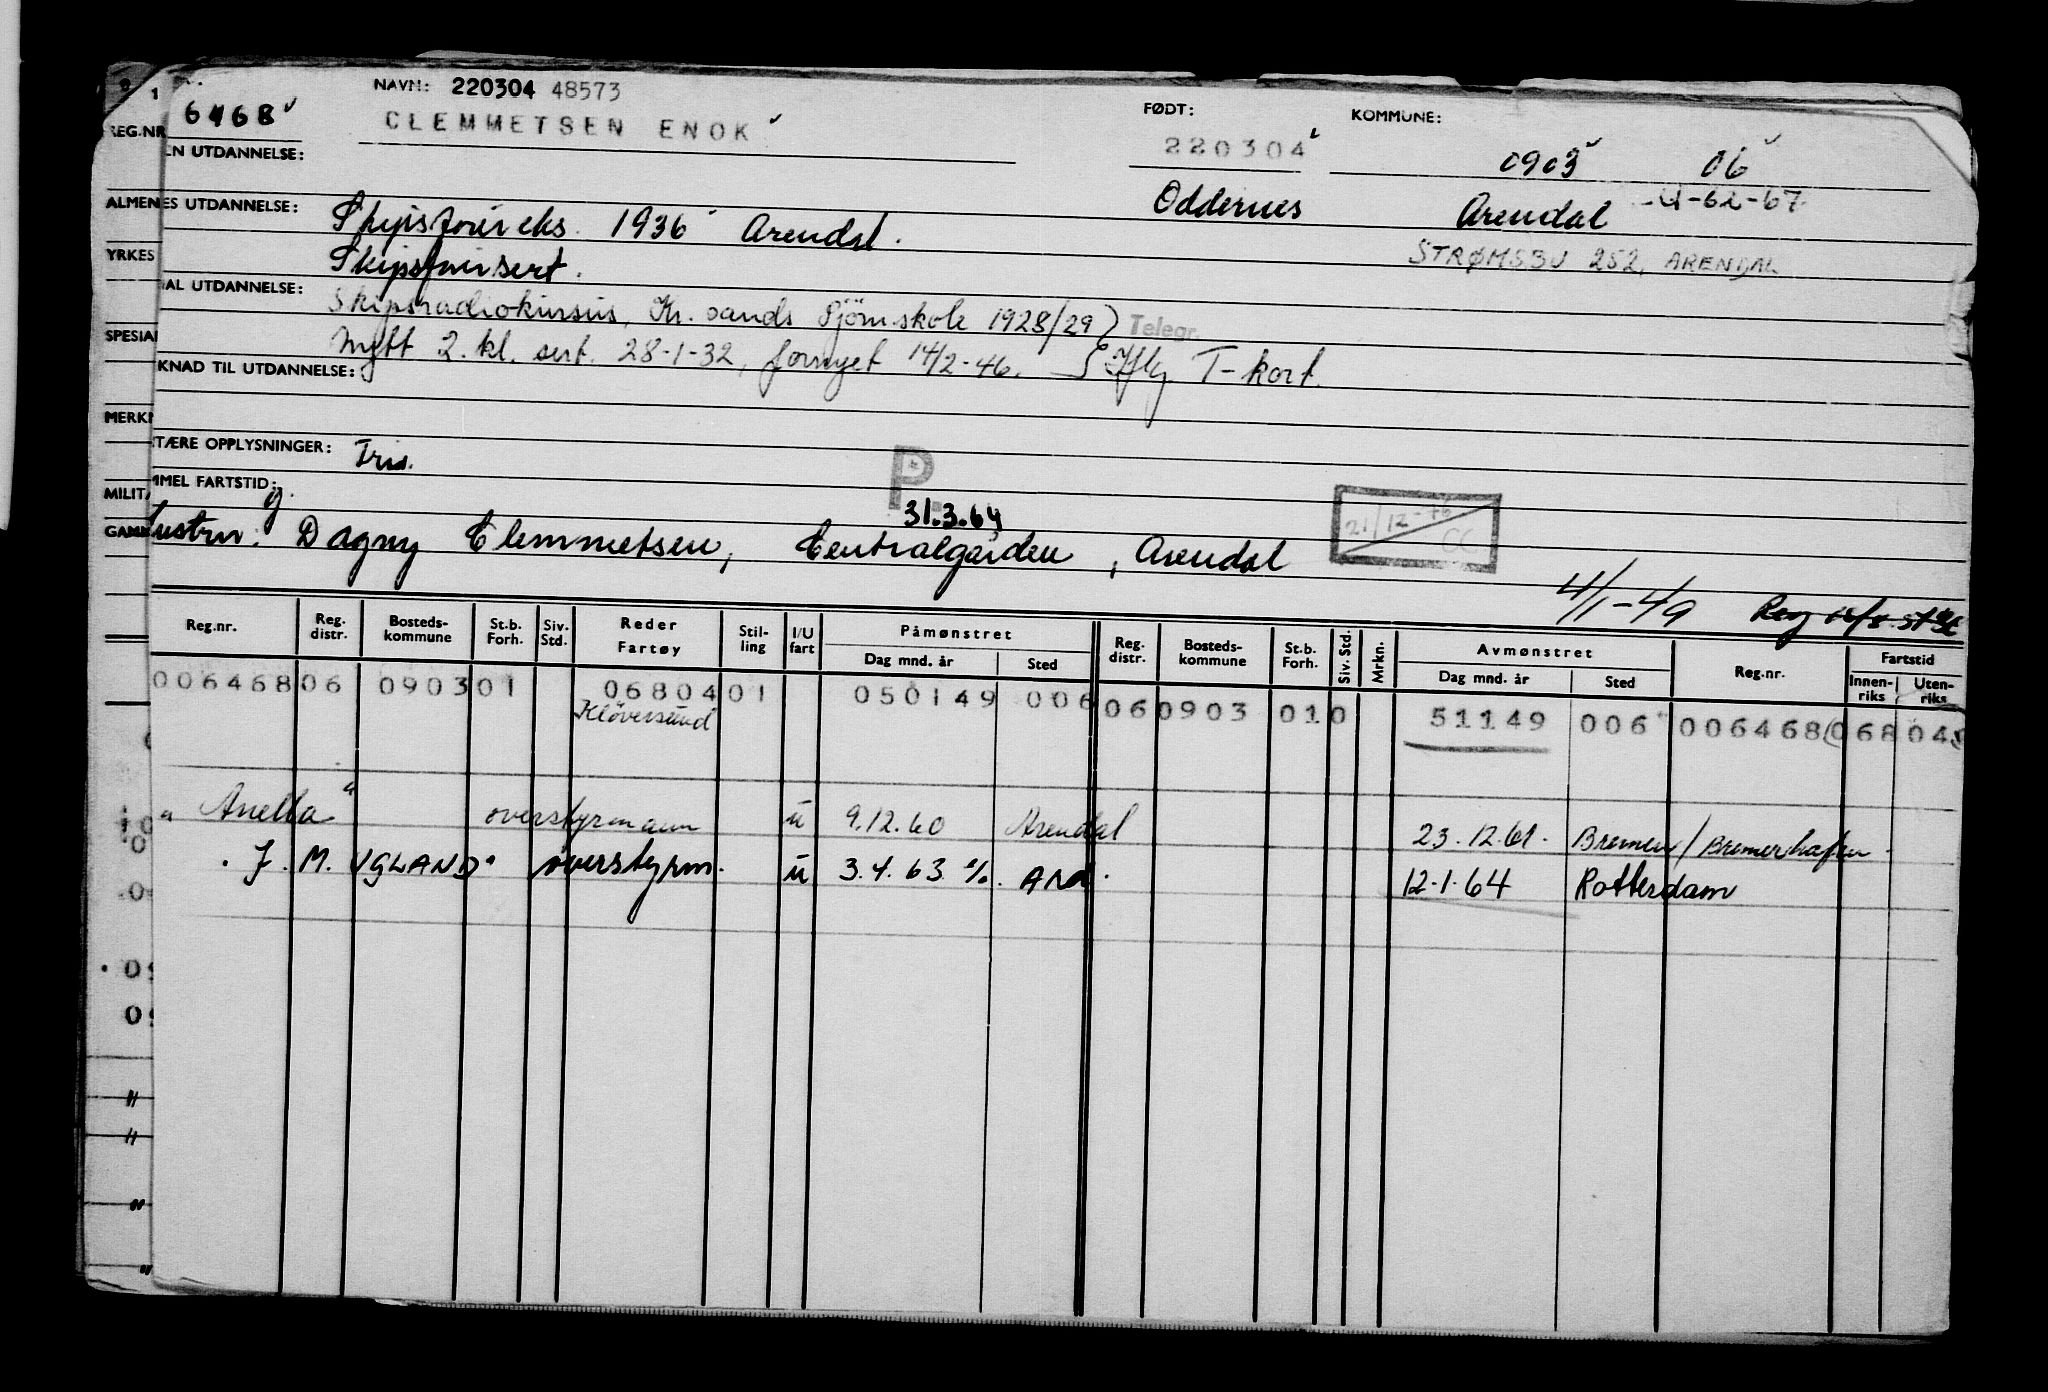 NAVN: 220304 48573
REG.NR 6468
CLEMMETSEN ENOK
FØDT:
220304
KOMMUNE:
0903 06
EN UTDANNELSE:
Oddernes Arendal 4-62-67
ALMENES UTDANNELSE: Skipsførereks. 1936 Arendal.
STRØMSBU 252, ARENDAL
YRKES Skipsførersert.
AL UTDANNELSE: Skipsradiokursus, Kr.sands Sjömskole 1928/29 Telegr.
SPESIAL
Nytt 2. kl. sert. 28-1-32, fornyet 14/2-46. Iflg T-kort.
KNAD TIL UTDANNELSE:
MERK
TÆRE OPPLYSNINGER:
P.
MMEL FARTSTID: g.
MILITÆ
31.3.64
21/12-46
CC
GAMM
Hustru: Dagny Clemmetsen, Centralgården, Arendal
4/1-49 Reg
Reg.nr. Reg. distr. Bosteds- kommune St.b. Forh. Siv. Std. Reder Fartøy Stil- ling I/U fart Påmønstret Dag mnd. år Sted Reg. distr. Bosteds- kommune St.b. Forh. Siv. Std. Mrkn. Avmønstret Dag mnd. år Sted Reg.nr. Fartstid Innen- riks Uten- riks
006468 06 0903 01 06804 01 050149 006 06 0903 01 0 51149 006 006468 068 04
Kløversund
" Anella " overstyrmann u 9.12.60 Arendal 23.12.61. Bremen/Bremerhafen
J. M. UGLAND" overstyrm. u 3.4.63 % Ard. 12.1.64 Rotterdam